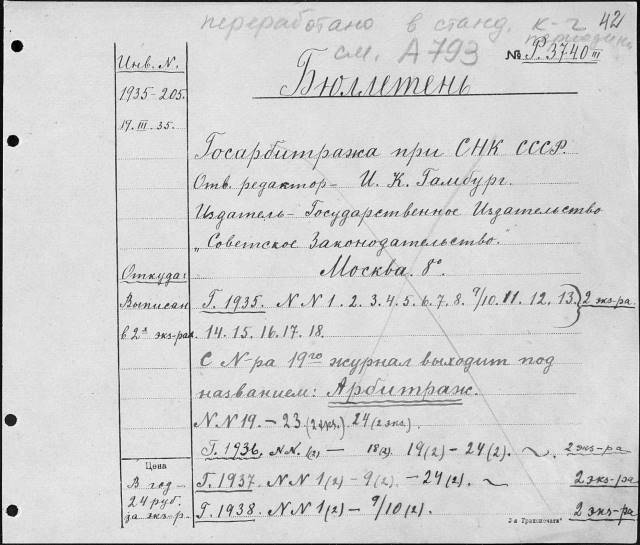 переработано в станд. к-г 42
периодики
см. А793
№ Р.3740 III
Инв. N.
Бюллетень
1935-205.
19.III.35.
Госарбитража при СНК СССР.
Отв. редактор - И. К. Гамбург.
Издатель - Государственное Издательство
"Советское Законодательство.
Москва. 8°
Откуда:
Выписан Г. 1935. N N 1. 2. 3. 4. 5. 6. 7. 8. 9/10. 11. 12. 13. 2 экз-ра.
в 2х экз-рах 14. 15. 16. 17. 18.
С N-ра 19го журнал выходит под
названием: Арбитраж.
N N 19. - 23. (2 экз.) 24 (2 экз.)
Г. 1936. N N. 1(2) - 18(2) 19(2) - 24(2). 2 экз-ра
Цена
В год - Г. 1937. N N 1(2) - 9(2). - 24(2). 2 экз-ра
24 руб.
за экз-р. Г. 1938. N N 1(2) - 9/10(2). 2 экз-ра